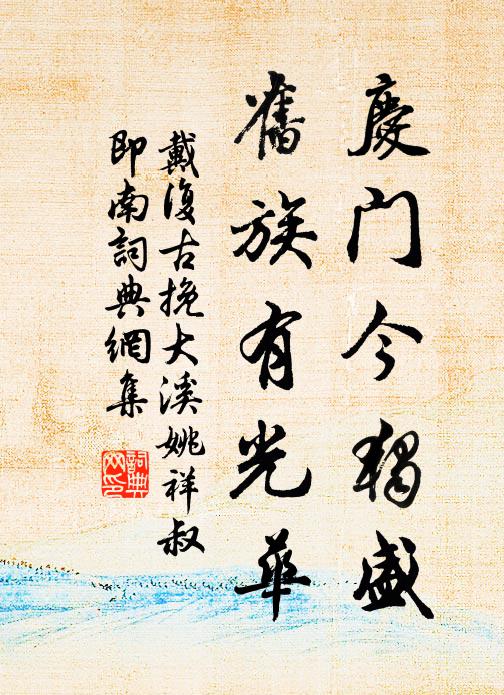 慶門今獨盛
舊族有光華
戴復古挽大溪姚祥叔
即南詞典網集
詞典
网印